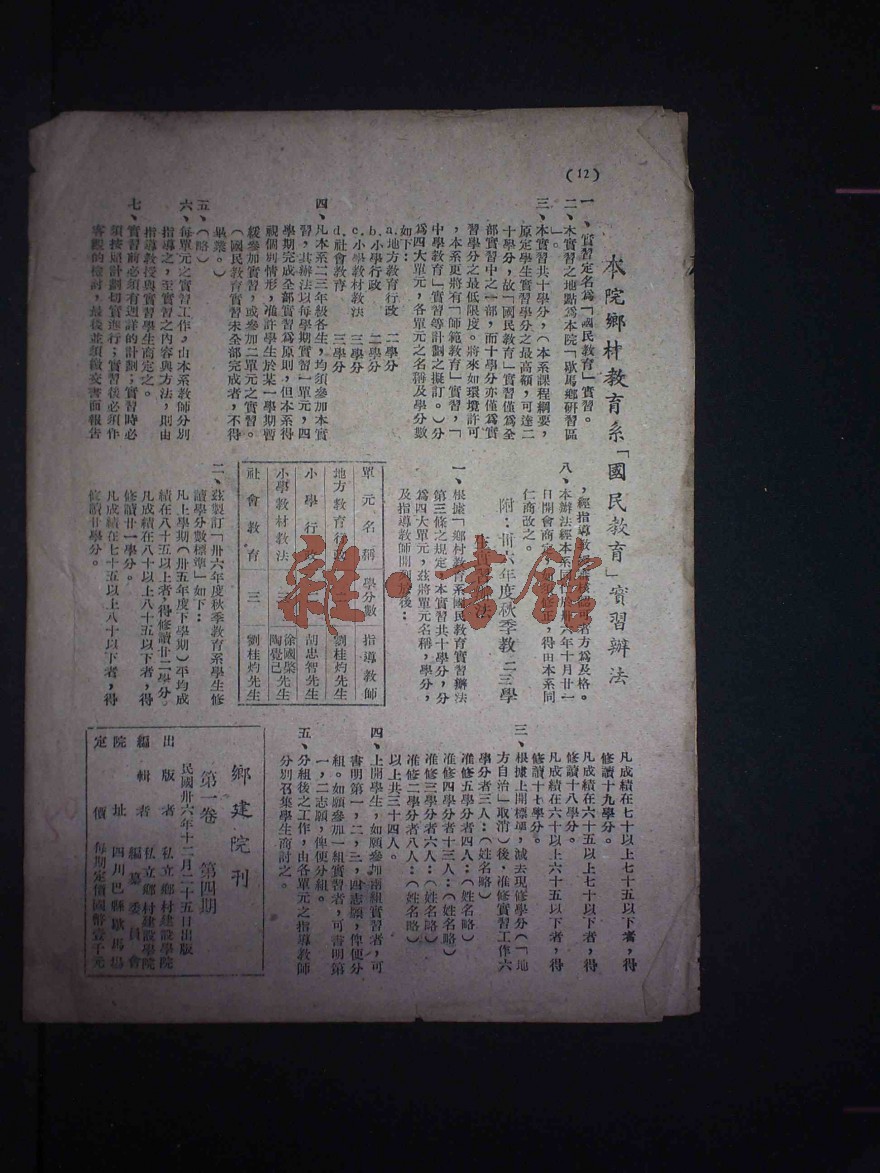 (12)
本院鄉村教育系「國民教育」實習辦法
一、實習定名爲「國民教育」實習。
二、本實習之地點爲本院「歇馬鄉研習區
」。
三、本實習共十學分，（本系課程綱要，
原定學生實習學分之最高額，可達二
十學分，故「國民教育」實習僅爲全
部實習中之一部，而十學分亦僅爲實
習學分之最低限度。將來如環境許可
，本系更將有「師範教育」實習，「
中學教育」實習等計劃之擬訂。）分
爲四大單元，各單元之名稱及學分數
如下：
a.地方教育行政 二學分
b.小學行政 二學分
c.小學教材教法 三學分
d.社會教育 三學分
四、凡本系二三年級各生，均須參加本實
習，其辦法以每學期實習一單元，四
學期完成全部實習爲原則，但本系得
視個別情形，准許學生於某一學期暫
緩參加實習，或參加二單元之實習。
（國民教育實習未全部完成者，不得
畢業。）
五、（略）
六、每單元之實習工作，由本系教師分別
指導之，至實習之內容與方法，則由
指導教授與實習學生商定之。
七、實習前必須有週詳的計劃；實習時必
須按照計劃切實進行；實習後必須作
客觀的檢討，最後並須繳交書面報告
，經指導教
可者方爲及格。
八、本辦法經本系
卅六年十月廿一
日開會商定
得由本系同
仁商改之。
附：卅六年度秋季教二三學
一、根據「鄉村教育系國民教育實習辦法
第三條之規定
本實習共十學分，分
爲四大單元，茲將單元名稱，學分，
及指導教師開列於後：
單元名稱 學分數 指導教師
地方教育行政 劉桂灼先生
小學行政 胡忠智先生
小學教材教法 徐國棨先生 陶覺己先生
社會教育 三 劉桂灼先生
二、茲製訂「卅六年度秋季教育系學生修
讀學分數標準」如下：
凡上學期（卅五年度下學期）平均成
績在八十五以上者，得修讀廿二學分。
凡成績在八十以上八十五以下者，得
修讀廿一學分。
凡成績在七十五以上八十以下者，得
修讀廿學分。
凡成績在七十以上七十五以下者，得
修讀十九學分。
凡成績在六十五以上七十以下者，得
修讀十八學分。
凡成績在六十以上六十五以下者，得
修讀十七學分。
三、根據上開標準，減去現修學分（「地
方自治」取消）後，准修實習工作六
學分者三人：（姓名略）
准修五學分者四人：（姓名略）
准修四學分者十三人：（姓名略）
准修三學分者六人：（姓名略）
准修二學分者八人：（姓名略）
以上共三十四人。
四、上開學生，如願參加兩組實習者，可
書明第一，二，三，四志願，俾便分
組。如願參加一組實習者，可書明第
一，二志願，俾便分組。
五、分組後之工作，由各單元之指導教師
分別召集學生商討之。
鄉建院刊
第一卷 第四期
民國卅六年十二月二十五日出版
出版者 私立鄉村建設學院
編輯者 私立鄉村建設學院
編纂委員會
院址 四川巴縣歇馬場
定價 每期定價國幣壹千元
雜·書館